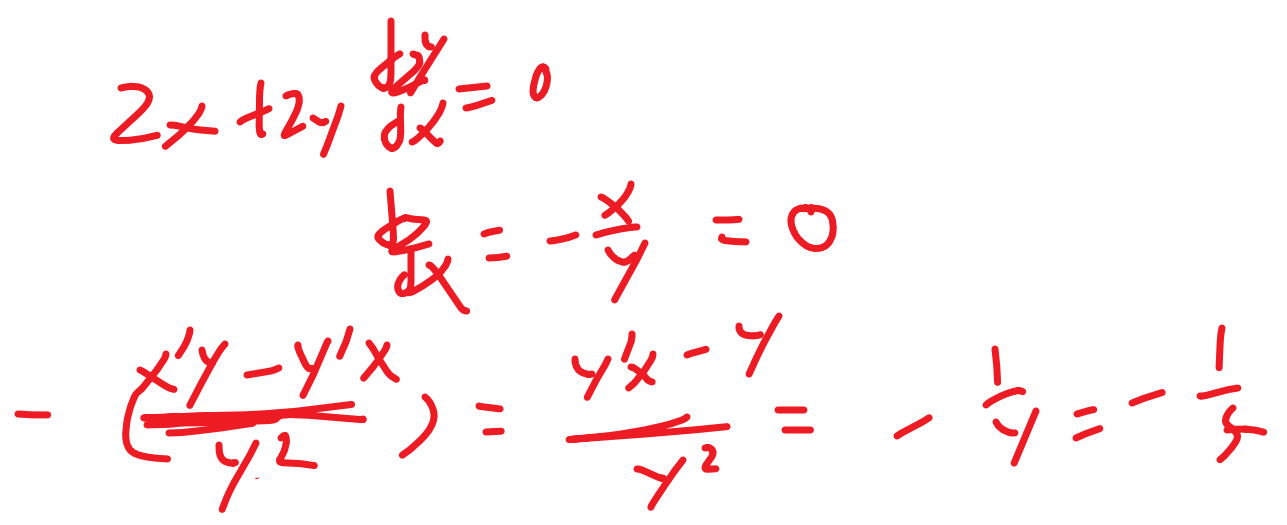 2x + 2y dy/dx = 0
dy/dx = - x/y = 0
- (x'y - y'x / y²) = y'x - y / y² = - 1/y = - 1/5